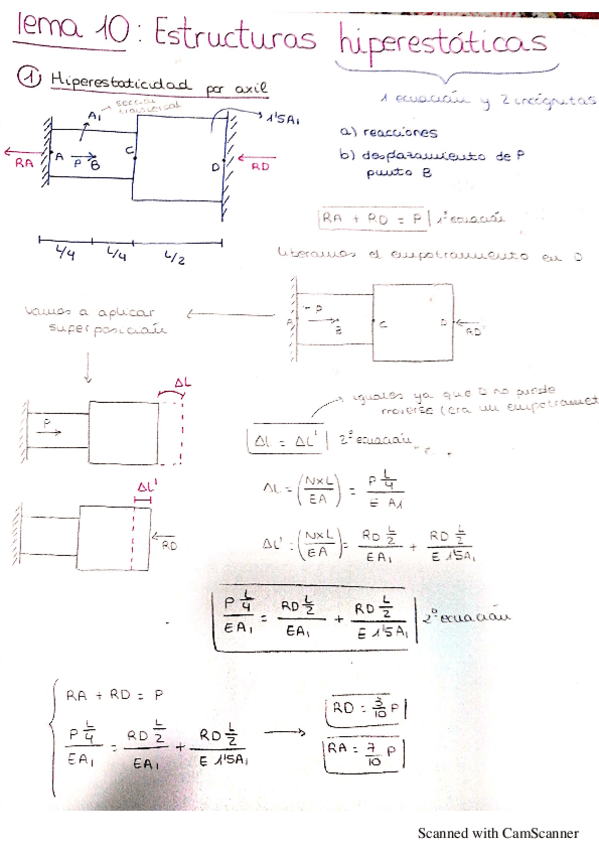 Tema 10: Estructuras hiperestáticas
① Hiperestaticidad por axil
1 ecuación y 2 incógnitas
A1
sección transversal
1'5A1
a) reacciones
b) desplazamiento de P
punto B
RA
A
P
B
C
D
RD
RA + RD = P 1ª ecuación
L/4 L/4 L/2
liberamos el empotramiento en D
Vamos a aplicar
superposición
A
P
B
C
D
RD
ΔL
P
iguales ya que D no puede
moverse (era un empotramient
ΔL = ΔL' 2ª ecuación
ΔL = (NxL/EA) = P L/4 / E A1
ΔL'
RD
ΔL' = (NxL/EA) = RD L/2 / EA1 + RD L/2 / E 1'5A1
P L/4 / EA1 = RD L/2 / EA1 + RD L/2 / E 1'5A1 2ª ecuación
RA + RD = P
P L/4 / EA1 = RD L/2 / EA1 + RD L/2 / E 1'5A1
RD = 3/10 P
RA = 7/10 P
Scanned with CamScanner